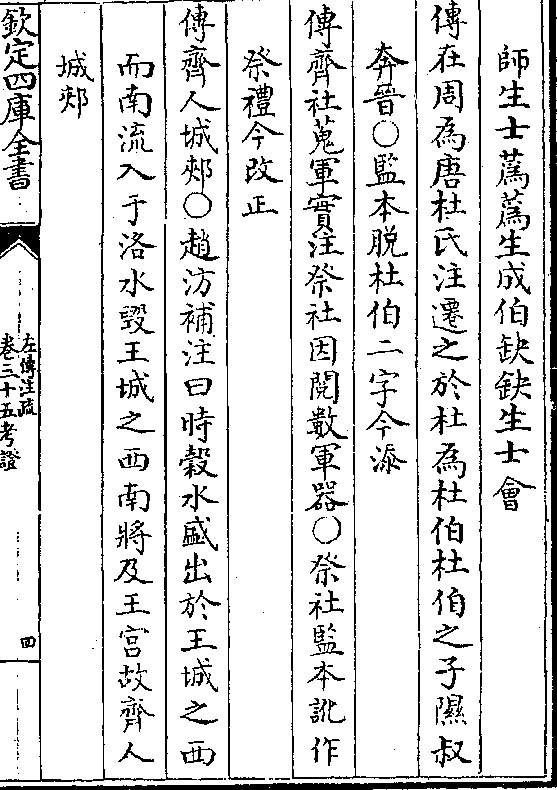 師生士蒍蒍生成伯缺缺生士會
傳在周為唐杜氏注遷之於杜為杜伯杜伯之子隰叔
奔晉〇監本脫杜伯二字今添
傳齊社蒐軍實注祭社因閱數軍器〇祭社監本訛作
祭禮今改正
傳齊人城郟〇趙汸補注曰時穀水盛出於王城之西
而南流入于洛水毀王城之西南將及王宮故齊人
城郟
欽定四庫全書
左傳注疏
卷三十五考證
四